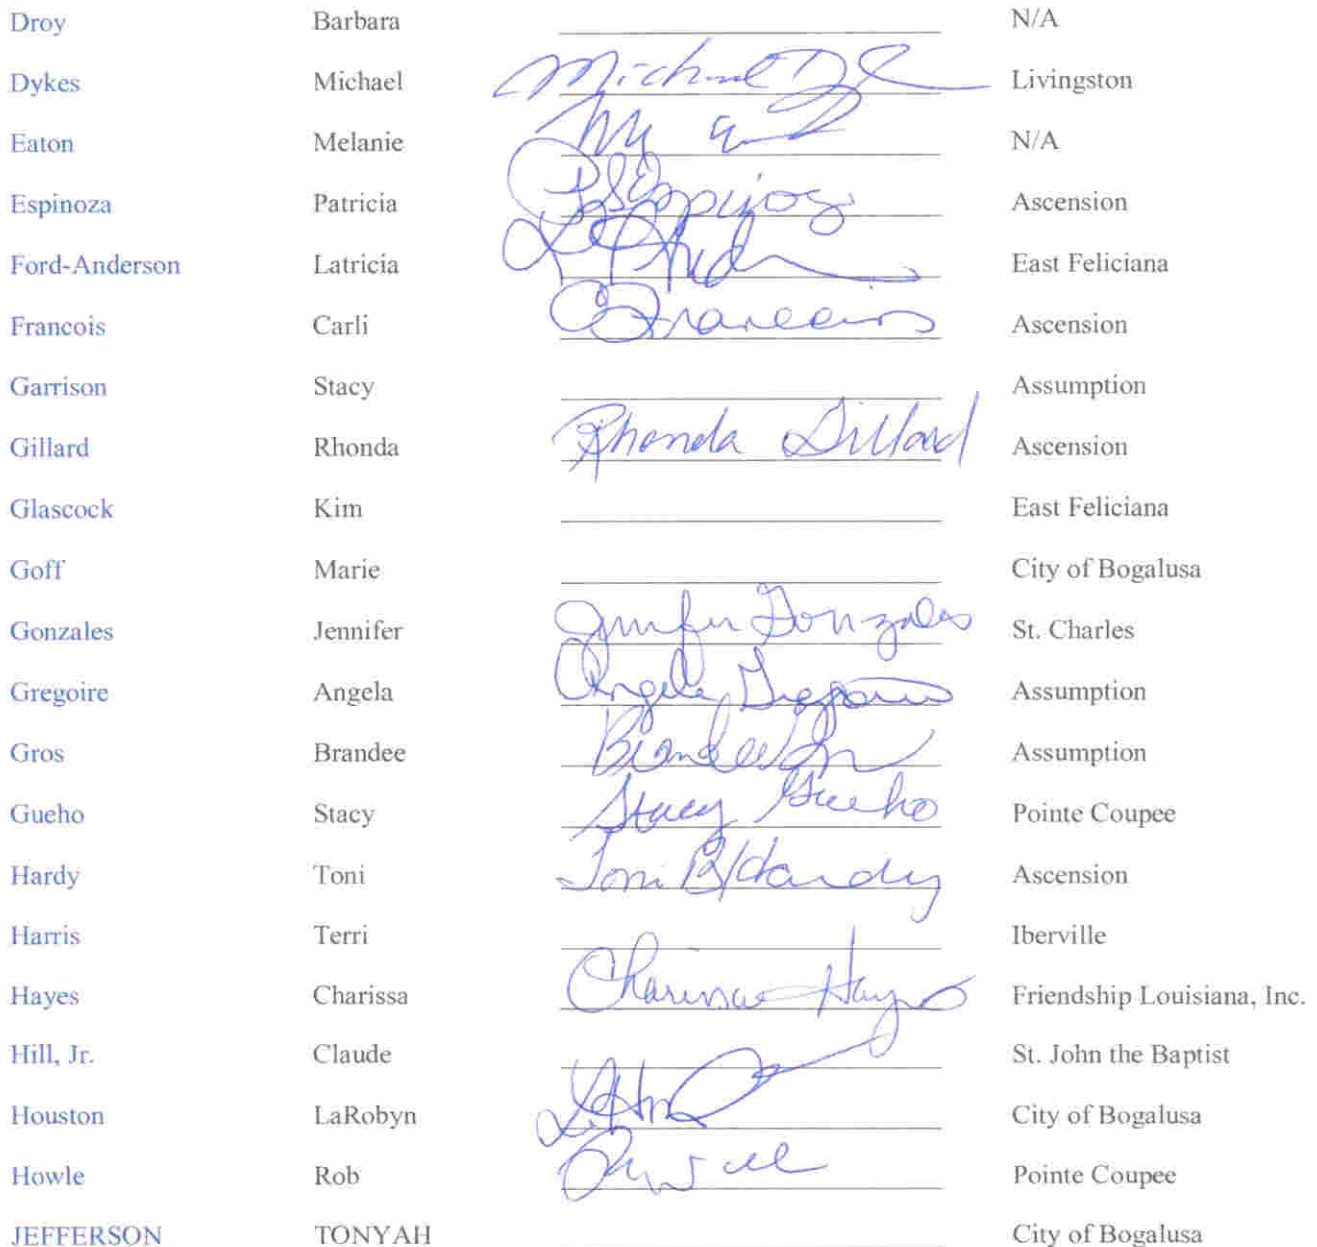 Droy Barbara N/A
Dykes Michael Michael Livingston
Eaton Melanie N/A
Espinoza Patricia PSEspinoza Ascension
Ford-Anderson Latricia East Feliciana
Francois Carli CFrancois Ascension
Garrison Stacy Assumption
Gillard Rhonda Rhonda Gillard Ascension
Glascock Kim East Feliciana
Goff Marie City of Bogalusa
Gonzales Jennifer Jennifer Gonzales St. Charles
Gregoire Angela Angela Gregoire Assumption
Gros Brandee Brandee Assumption
Gueho Stacy Stacy Gueho Pointe Coupee
Hardy Toni Toni B Hardy Ascension
Harris Terri Iberville
Hayes Charissa Charissa Hayes Friendship Louisiana, Inc.
Hill, Jr. Claude St. John the Baptist
Houston LaRobyn City of Bogalusa
Howle Rob Pointe Coupee
JEFFERSON TONYAH City of Bogalusa